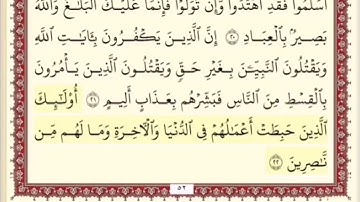 أَسْلَمُوا۟ فَقَدِ ٱهْتَدَوا۟ وَّإِن تَوَلَّوْا۟ فَإِنَّمَا عَلَيْكَ ٱلْبَلَـٰغُ وَٱللَّهُ
بَصِيرٌۢ بِٱلْعِبَادِ ۝٢٠ إِنَّ ٱلَّذِينَ يَكْفُرُونَ بِـَٔايَـٰتِ ٱللَّهِ
وَيَقْتُلُونَ ٱلنَّبِيِّـۧنَ بِغَيْرِ حَقٍّ وَيَقْتُلُونَ ٱلَّذِينَ يَأْمُرُونَ
بِٱلْقِسْطِ مِنَ ٱلنَّاسِ فَبَشِّرْهُم بِعَذَابٍ أَلِيمٍ ۝٢١ أُو۟لَـٰٓئِكَ
ٱلَّذِينَ حَبِطَتْ أَعْمَـٰلُهُمْ فِى ٱلدُّنْيَا وَٱلْـَٔاخِرَةِ وَمَا لَهُم مِّن
نَّـٰصِرِينَ ۝٢٢
٥٢